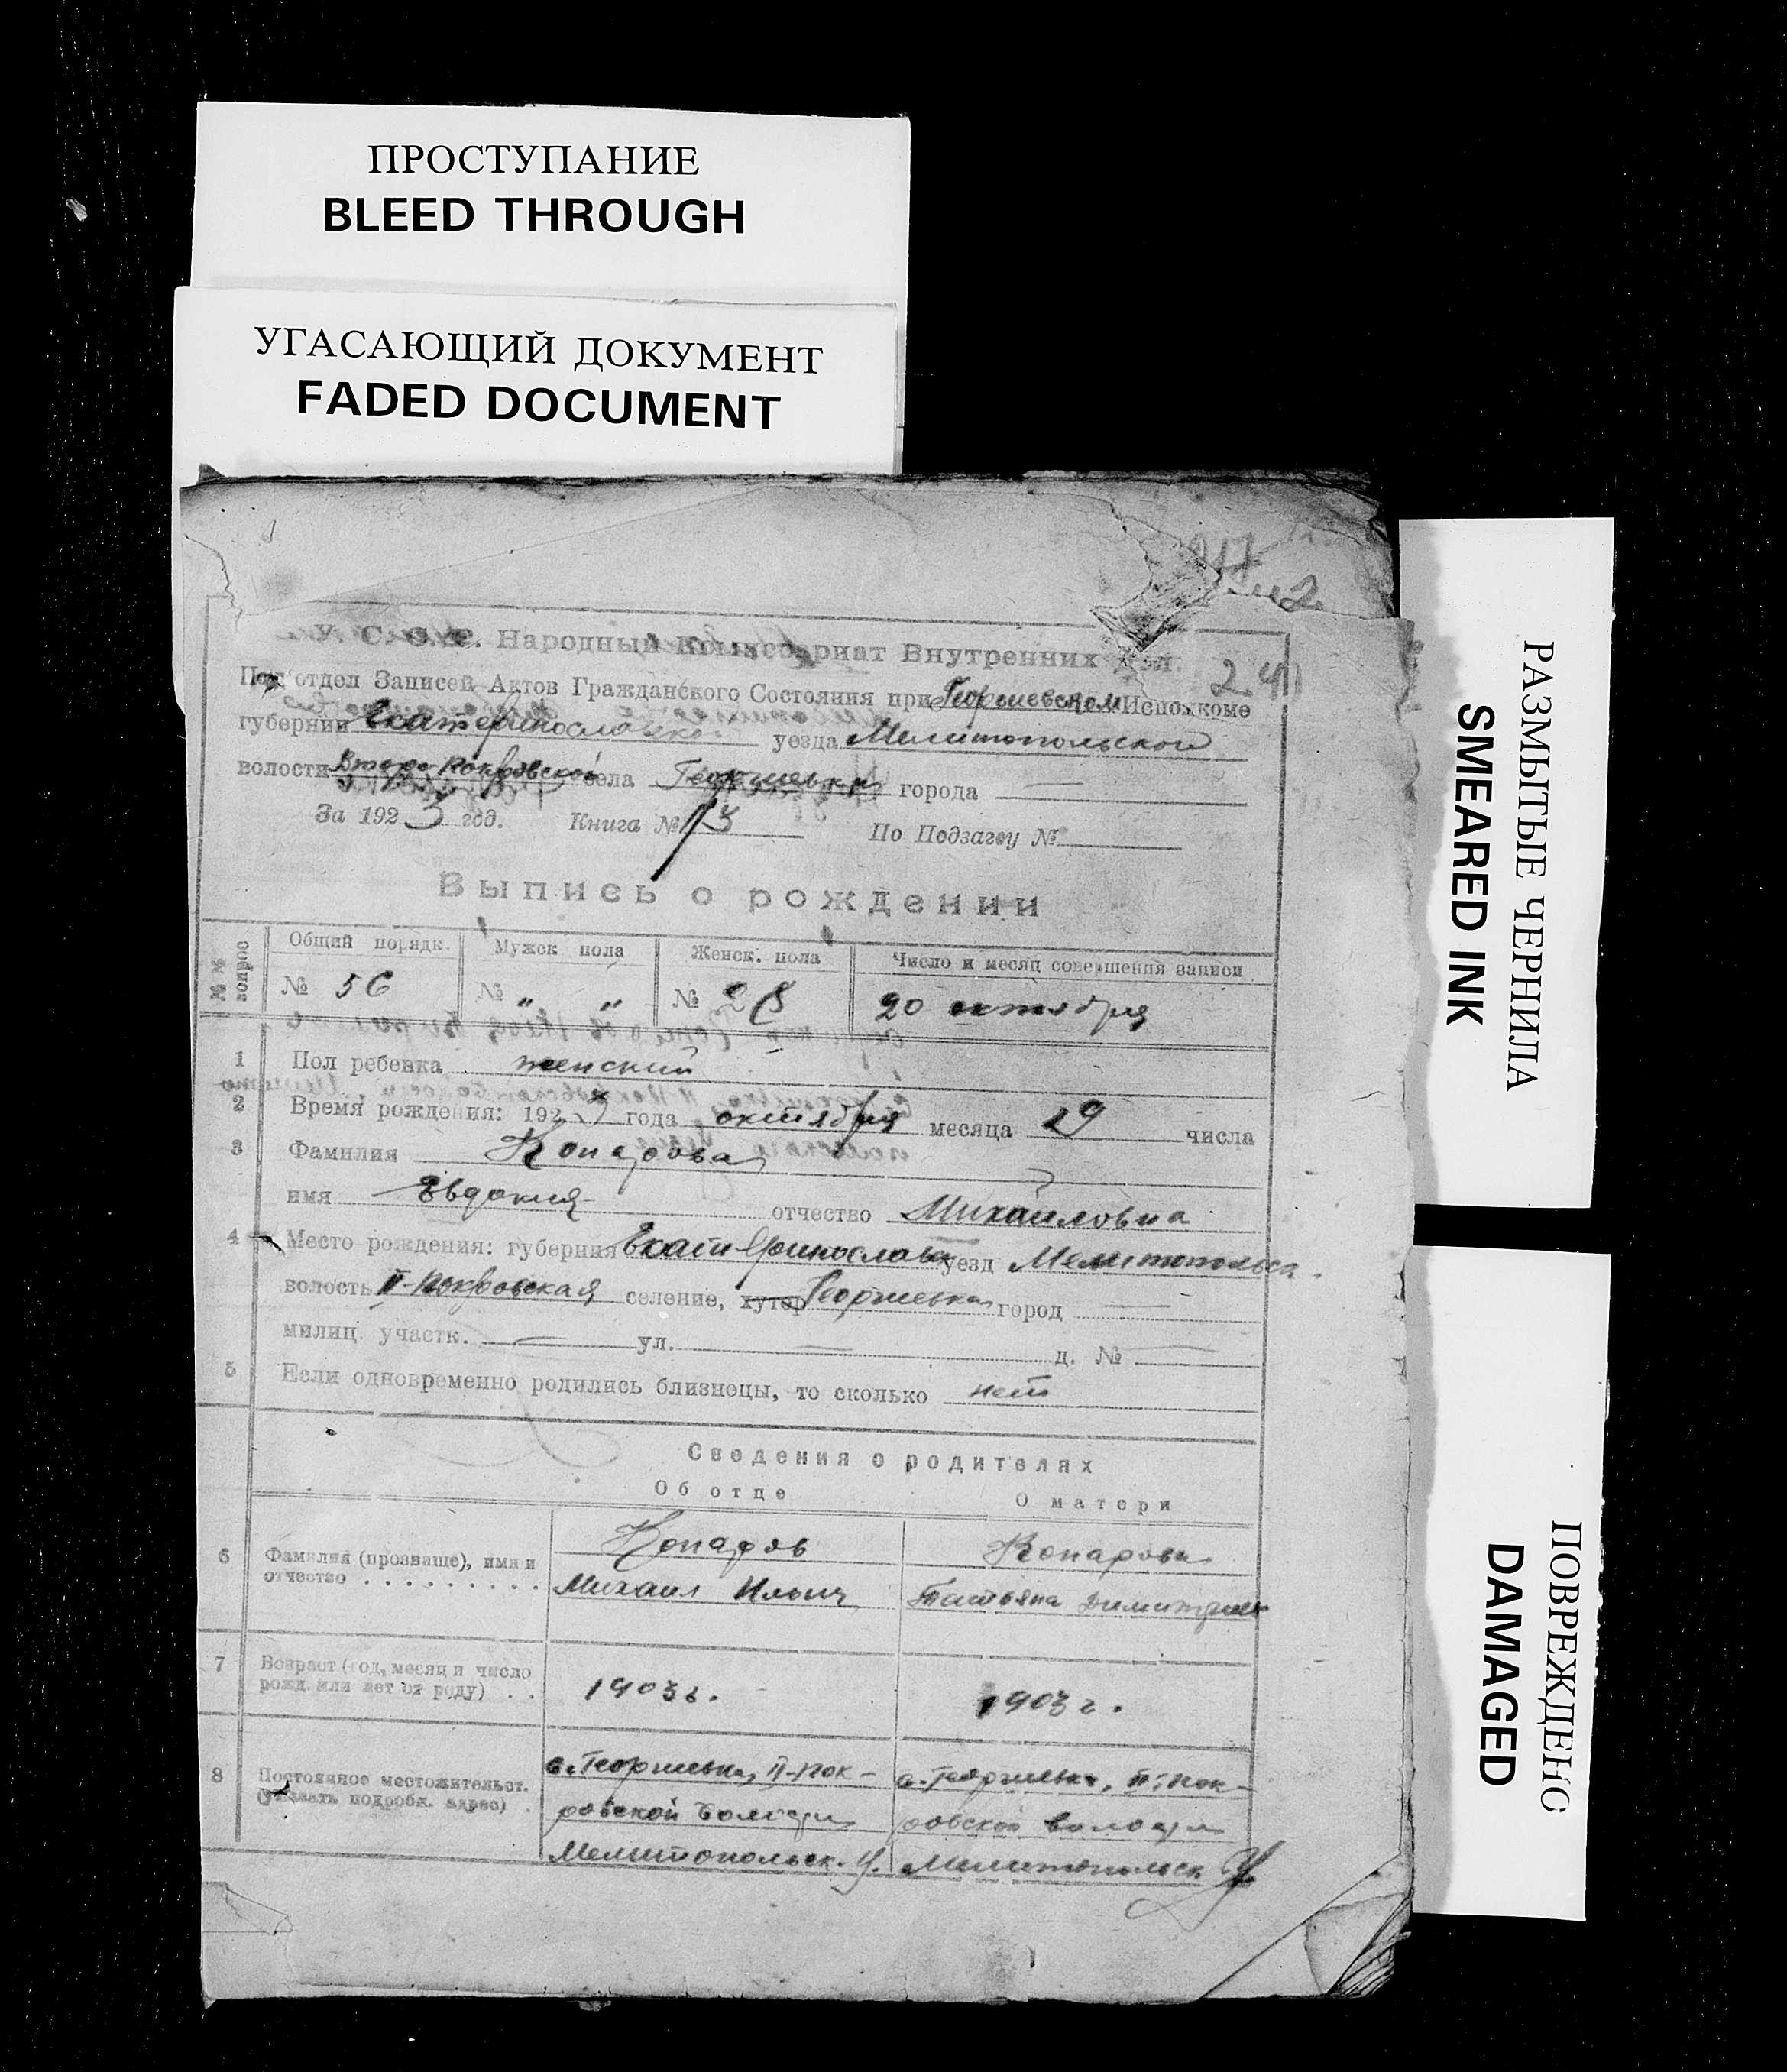 ПРОСТУПАНИЕ
BLEED THROUGH
УГАСАЮЩИЙ ДОКУМЕНТ
FADED DOCUMENT
РАЗМЫТЫЕ ЧЕРНИЛА
SMEARED INK
ПОВРЕЖДЕНО
DAMAGED
241
У. С. С. Р. Народный Комиссариат Внутренних Дел.
Под'отдел Записей Актов Гражданского Состояния при Георгиевском Исполкоме
губернии Екатеринославско уезда Мелитопольского
волости Второ-Покровской села Георгиевки города —
За 1923 год. Книга № 13 По Подзагсу №
Выпись о рождении
№№ вопросов
Общий порядк. Мужск пола Женск. пола Число и месяц совершения записи
№ 56 № „ „ № 28 20 октября
1 Пол ребенка женский
2 Время рождения: 192 года октября месяца 29 числа
3 Фамилия Конарова
имя Евдокия отчество Михайловна
4 Место рождения: губерния Екатеринослав уезд Мелитопольск.
волость II-Покровская селение, хутор Георгиевка город —
милиц. участк. — ул. — д. № —
5 Если одновременно родились близнецы, то сколько нет
Сведения о родителях
Об отце О матери
6 Фамилия (прозвище), имя и отчество
Конаров
Михаил Ильич
Конарова
Татьяна Димитриев
7 Возраст (год, месяц и число рожд. или лет от роду)
1903 г.
1903 г.
8 Постоянное местожительст. (указать подробн. адрес)
с. Георгиевка, II-Пок-
ровской волости
Мелитопольск. У.
с. Георгиевка, II-Пок-
ровской волости
Мелитопольск. У.